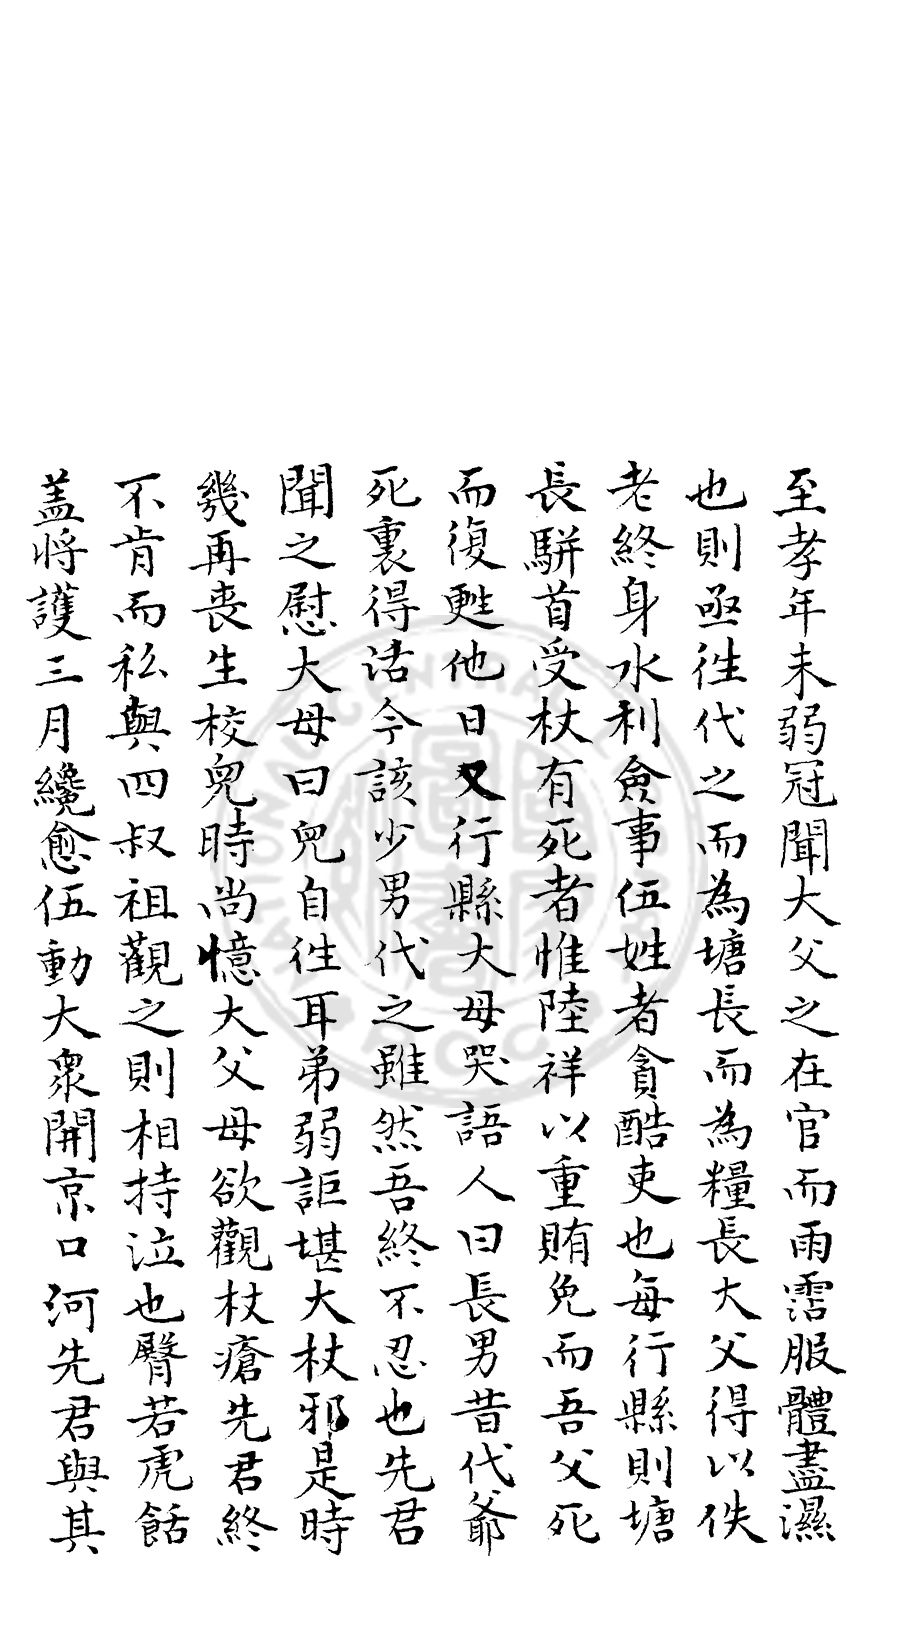 至孝年未弱冠聞大父之在官而雨霑服體盡濕
也則亟徃代之而為塘長而為糧長大父得以佚
老終身水利僉事伍姓者貪酷吏也每行縣則塘
長駢首受杖有死者惟陸祥以重賄免而吾父死
而復甦他日又行縣大母哭語人曰長男昔代爺
死裏得活今該少男代之雖然吾終不忍也先君
聞之慰大母曰皃自徃耳弟弱詎堪大杖邪是時
幾再喪生校皃時尚憶大父母欲觀杖瘡先君終
不肯而私與四叔祖觀之則相持泣也臀若虎餂
盖将護三月纔愈伍動大衆開京口河先君與其